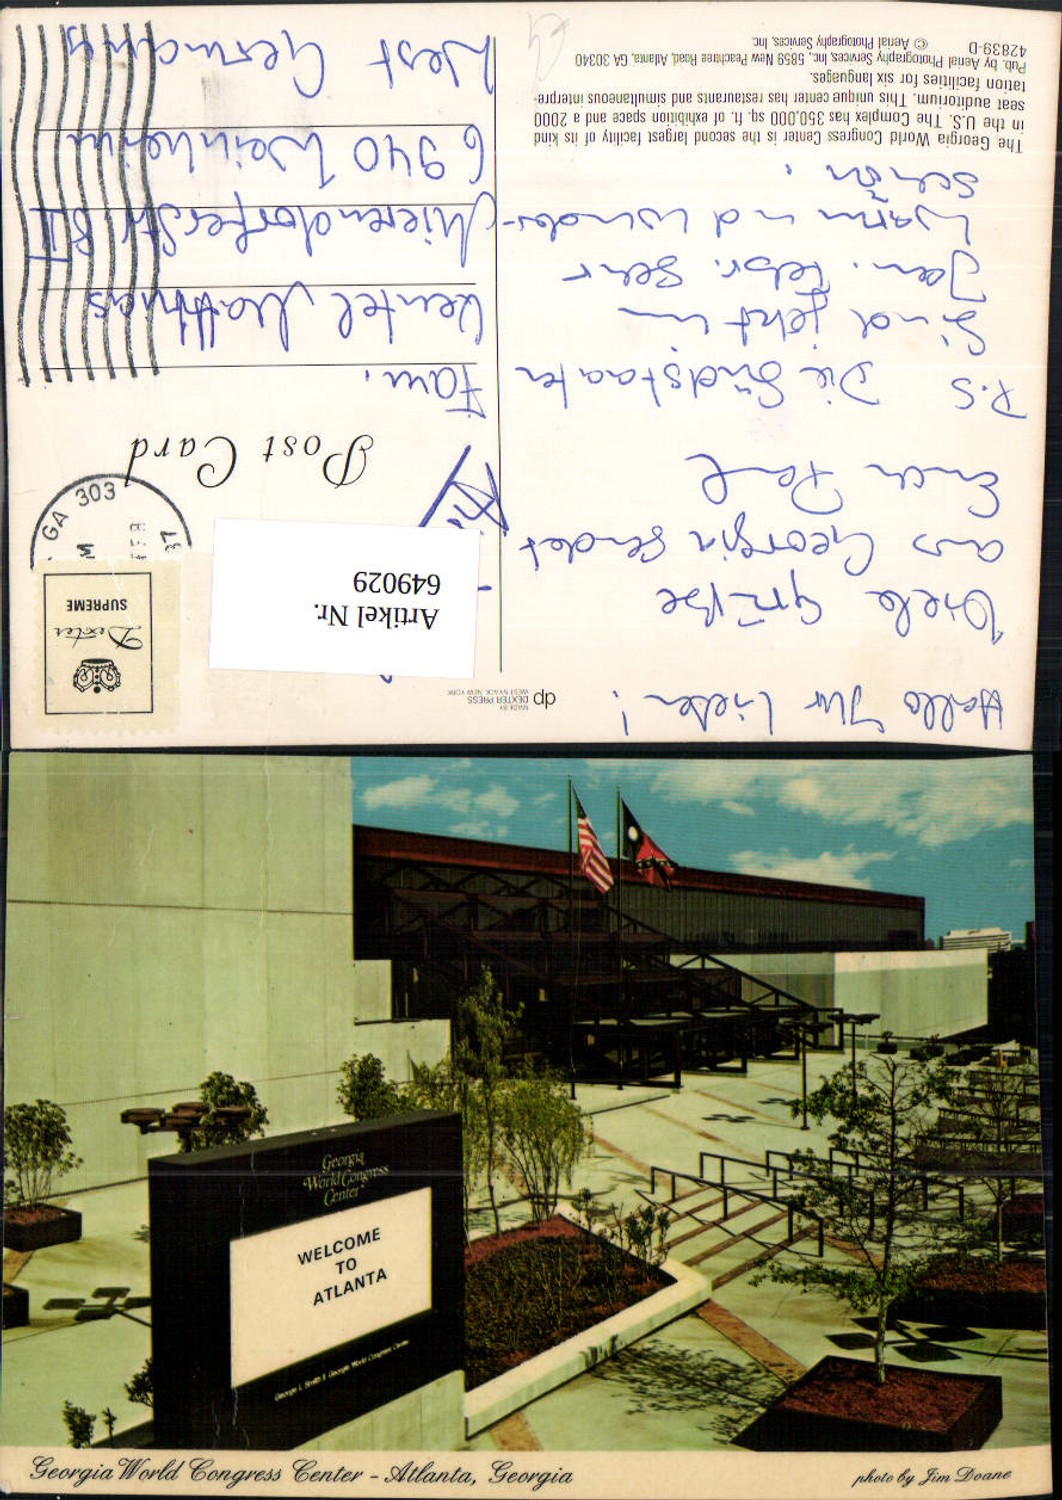 Hallo Ihr Lieben!
Viele Grüße
aus Georgia sendet
Euch Paul
P.S Die Südstaaten
sind jetzt im
Jan. Febr. sehr
warm und wunder-
schön.
The Georgia World Congress Center is the second largest facility of its kind
in the U.S. The Complex has 350,000 sq. ft. of exhibition space and a 2000
seat auditorium. This unique center has restaurants and simultaneous interpre-
tation facilities for six languages.
Pub. by Aerial Photography Services, Inc., 5859 New Peachtree Road, Atlanta, GA 30340
42839-D © Aerial Photography Services, Inc.
dp MADE BY
DEXTER PRESS
WEST NYACK, NEW YORK
Artikel Nr.
649029
Dexter
SUPREME
GA 303
Post Card
Fam.
Kentel Mathias
Mierendorfferstr 8
6940 Weinheim
West Germany
Georgia
World Congress
Center
WELCOME
TO
ATLANTA
George L. Smith II Georgia World Congress Center
Georgia World Congress Center - Atlanta, Georgia
photo by Jim Doane